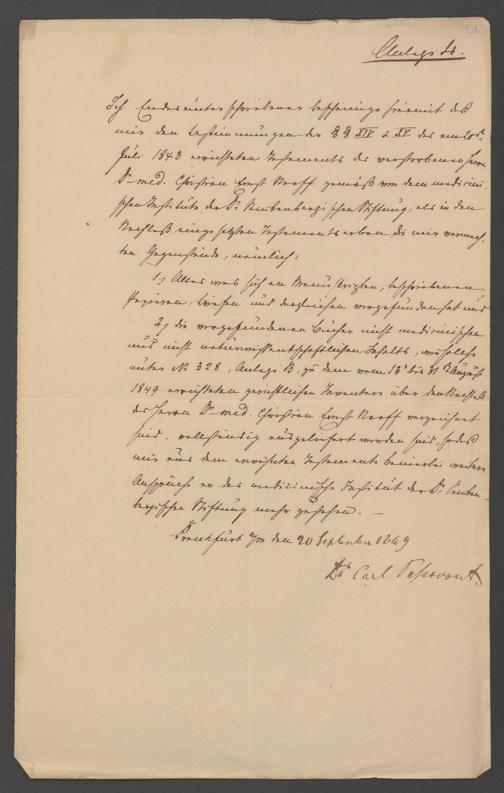 136
Anlage D.
Ich Endesunterschriebener bescheinige hiermit daß
mir den Bestimmungen der §§ XIV & XV des am
Juli 1843 errichteten Testaments des verstorbenen Herrn
Dr med. Christian Ernst Neeff gemäß von dem medicini-
schen Institute der Dr Senkenbergischen Stiftung, als in den
Nachlaß eingesetzten Testamentserben, die mir vermach-
ten Gegenstände, nämlich:
1, Alles was sich an Manuskripten, beschriebenen
Papieren, Briefen und dergleichen vorgefunden hat und
2, die vorgefundenen Bücher nicht medicinischen
und nicht naturwissentschaftlichen Inhalts, wie solche
unter No 328, Anlage B, zu dem vom 13t bis 31t August
1849 errichteten gerichtlichen Inventar über den Nachlaß
des Herrn Dr med. Christian Ernst Neeff verzeichnet
sind, vollständig ausgeliefert worden sind, so daß
mir aus dem erwähnten Testamente keinerlei weitere
Ansprüche an das medicinische Institut der Dr Senken-
bergischen Stiftung mehr zustehen. —
Frankfurt a/m den 20 September 1849
Dr Carl Passavant